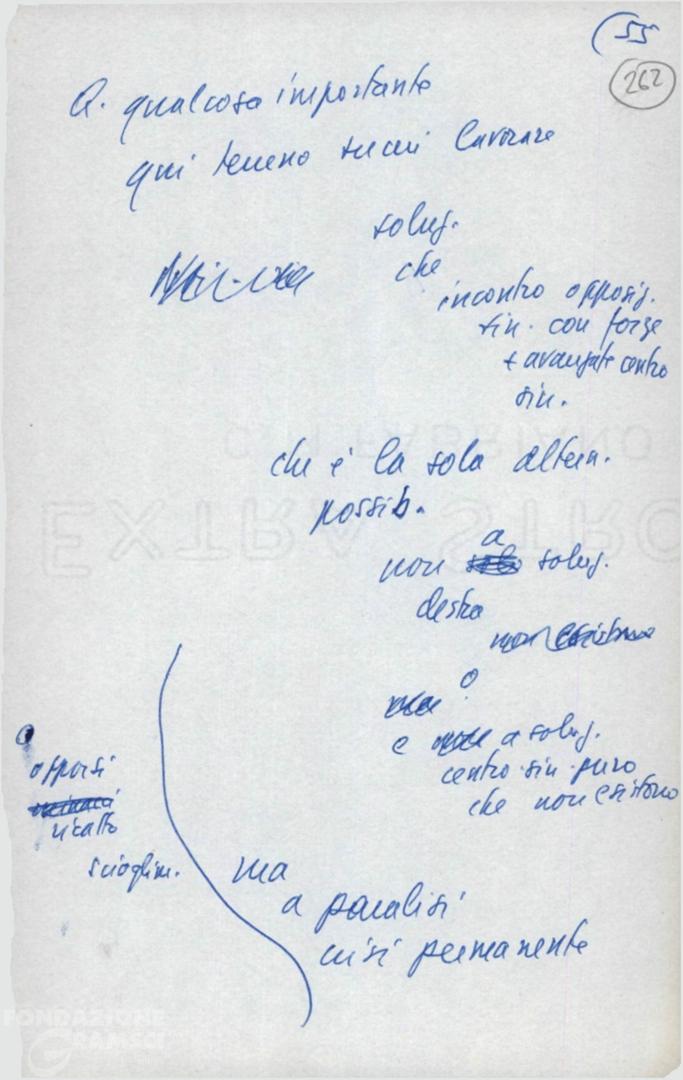 55
262
Q. qualcosa importante
qui terreno su cui lavorare
soluz.
che
incontro opposiz.
sin. con forze
+ avanzate centro
sin.
che è la sola altern.
possib.
non a soluz.
destra
o
e a soluz.
centro-sin. puro
che non esistono
opporsi
ricatto
scioglim.
ma
a paralisi
crisi permanente
FONDAZIONE
GRAMSCI
EXTRA STRO
C.M. FABRIANO